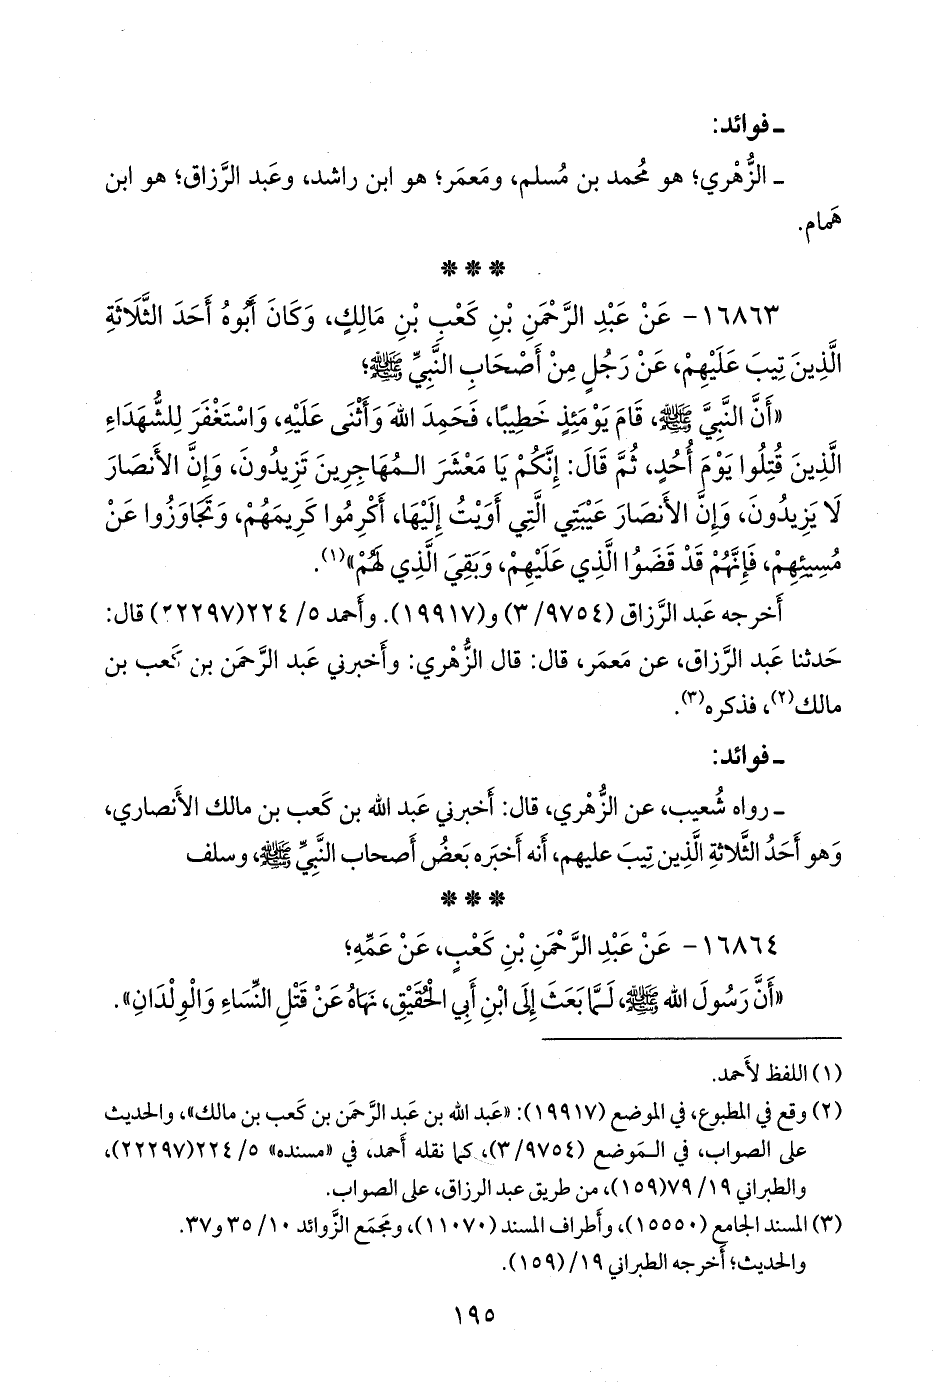 ـ فوائد:
ـ الزُّهْري؛ هو مُحمد بن مُسلم، ومَعمَر؛ هو ابن راشد، وعَبد الرَّزاق؛ هو ابن
هَمام.
* * *
١٦٨٦٣- عَنْ عَبْدِ الرَّحْمَنِ بْنِ كَعْبِ بْنِ مَالِكٍ، وَكَانَ أَبُوهُ أَحَدَ الثَّلاَثَةِ
الَّذِينَ تِيبَ عَلَيْهِمْ، عَنْ رَجُلٍ مِنْ أَصْحَابِ النَّبِيِّ ﷺ؛
«أَنَّ النَّبِيَّ ﷺ، قَامَ يَوْمَئِذٍ خَطِيبًا، فَحَمِدَ اللهَ وَأَثْنَى عَلَيْهِ، وَاسْتَغْفَرَ لِلشُّهَدَاءِ
الَّذِينَ قُتِلُوا يَوْمَ أُحُدٍ، ثُمَّ قَالَ: إِنَّكُمْ يَا مَعْشَرَ الـمُهَاجِرِينَ تَزِيدُونَ، وَإِنَّ الأَنْصَارَ
لاَ يَزِيدُونَ، وَإِنَّ الأَنْصَارَ عَيْبَتِي الَّتِي أَوَيْتُ إِلَيْهَا، أَكْرِمُوا كَرِيمَهُمْ، وَتَجَاوَزُوا عَنْ
مُسِيئِهِمْ، فَإِنَّهُمْ قَدْ قَضَوُا الَّذِي عَلَيْهِمْ، وَبَقِيَ الَّذِي لَهُمْ»(١).
أَخرجه عَبد الرَّزاق (٩٧٥٤/ ٣) و(١٩٩١٧). وأَحمد ٥/ ٢٢٤(٢٢٢٩٧) قال:
حَدثنا عَبد الرَّزاق، عن مَعمَر، قال: قال الزُّهْري: وأَخبرني عَبد الرَّحمَن بن كَعب بن
مالك(٢)، فذكره(٣).
ـ فوائد:
ـ رواه شُعيب، عن الزُّهْري، قال: أَخبرني عَبد الله بن كَعب بن مالك الأَنصاري،
وَهو أَحَدُ الثَّلاثةِ الَّذين تِيبَ عليهم، أَنه أَخبَره بَعضُ أَصحاب النَّبيِّ ﷺ، وسلف
* * *
١٦٨٦٤- عَنْ عَبْدِ الرَّحْمَنِ بْنِ كَعْبٍ، عَنْ عَمِّهِ؛
«أَنَّ رَسُولَ اللهِ ﷺ، لَـمَّا بَعَثَ إِلَى ابْنِ أَبِي الْحُقَيْقِ، نَهَاهُ عَنْ قَتْلِ النِّسَاءِ وَالْوِلْدَانِ».
(١) اللفظ لأَحمد.
(٢) وقع في المطبوع، في الموضع (١٩٩١٧): «عَبد الله بن عَبد الرَّحمَن بن كَعب بن مالك»، والحديث
على الصواب، في الـمَوضع (٩٧٥٤/ ٣)، كما نقله أَحمد، في «مسنده» ٥/ ٢٢٤(٢٢٢٩٧)،
والطبراني ١٩/ ٧٩(١٥٩)، من طريق عبد الرزاق، على الصواب.
(٣) المسند الجامع (١٥٥٥٠)، وأَطراف المسند (١١٠٧٠)، ومجَمَع الزَّوائد ١٠/ ٣٥ و٣٧.
والحديث؛ أَخرجه الطبراني ١٩/ (١٥٩).
١٩٥